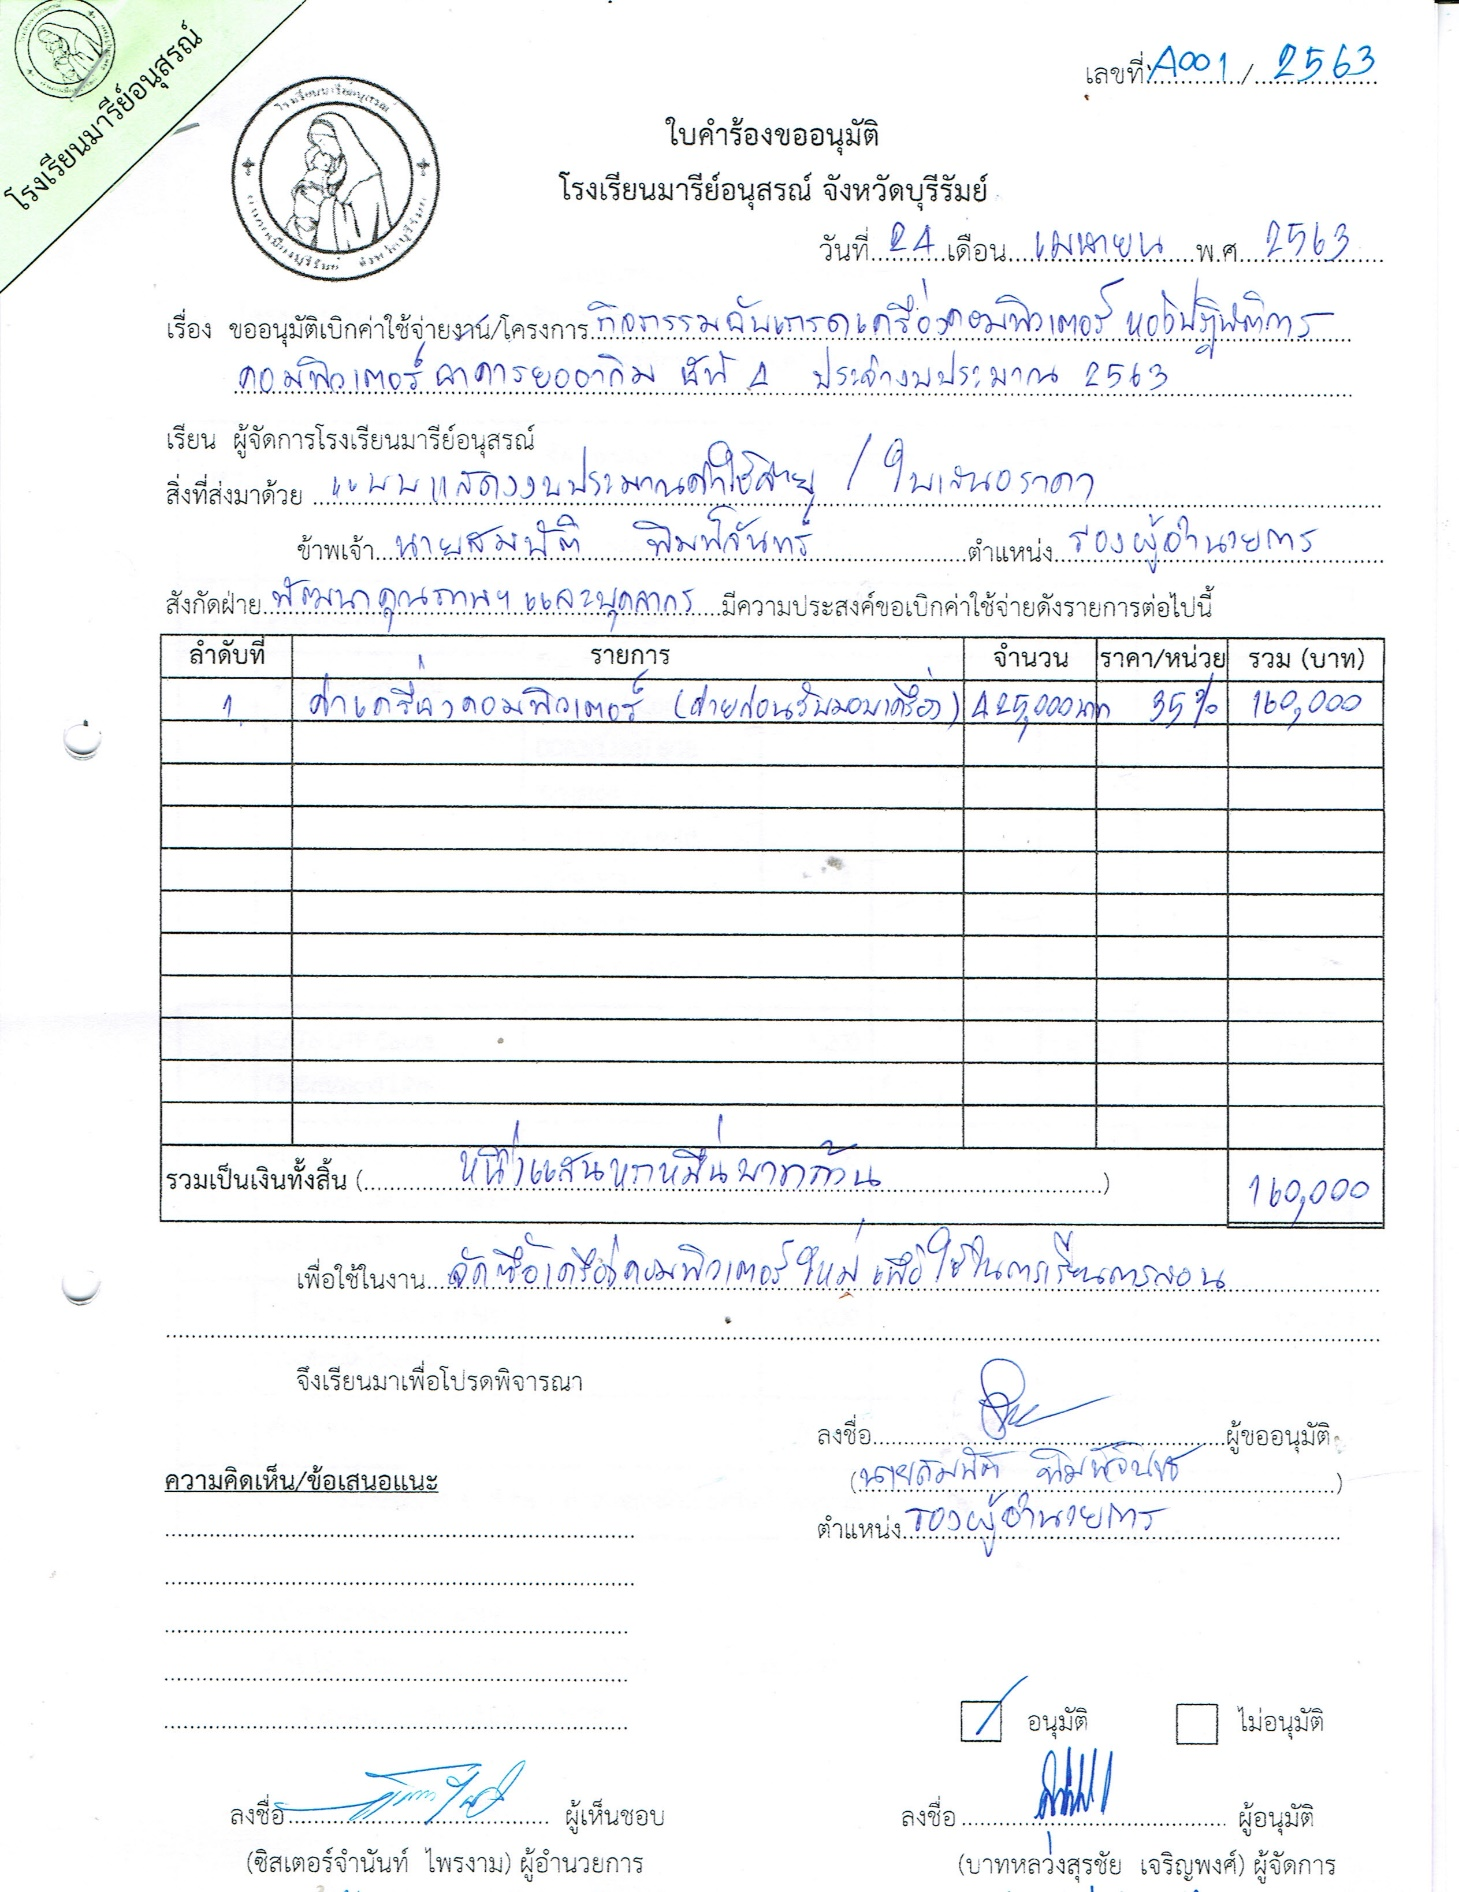 โรงเรียนมารีย์อนุสรณ์
เลขที่ A001 / 2563
ใบคำร้องขออนุมัติ
โรงเรียนมารีย์อนุสรณ์ จังหวัดบุรีรัมย์
วันที่ 24 เดือน เมษายน พ.ศ. 2563
เรื่อง ขออนุมัติเบิกค่าใช้จ่ายงาน/โครงการ กิจกรรมอัพเกรดเครื่องคอมพิวเตอร์ ห้องปฏิบัติการ
คอมพิวเตอร์ อาคารยออากิม ชั้นที่ 4 ประจำงบประมาณ 2563
เรียน ผู้จัดการโรงเรียนมารีย์อนุสรณ์
สิ่งที่ส่งมาด้วย แบบแสดงงบประมาณค่าใช้จ่าย / ใบเสนอราคา
ข้าพเจ้า นายสมบัติ พิมพ์จันทร์ ตำแหน่ง รองผู้อำนวยการ
สังกัดฝ่าย พัฒนาคุณภาพฯ และบุคลากร มีความประสงค์ขอเบิกค่าใช้จ่ายดังรายการต่อไปนี้
ลำดับที่ รายการ จำนวน ราคา/หน่วย รวม (บาท)
1 ค่าเครื่องคอมพิวเตอร์ (จ่ายก่อนรับมอบเครื่อง) 425,000 บาท 35% 160,000
รวมเป็นเงินทั้งสิ้น (หนึ่งแสนหกหมื่นบาทถ้วน) 160,000
เพื่อใช้ในงาน จัดซื้อเครื่องคอมพิวเตอร์ใหม่ เพื่อใช้ในการเรียนการสอน
จึงเรียนมาเพื่อโปรดพิจารณา
ลงชื่อ ผู้ขออนุมัติ
ความคิดเห็น/ข้อเสนอแนะ (นายสมบัติ พิมพ์จันทร์)
ตำแหน่ง รองผู้อำนวยการ
อนุมัติ ไม่อนุมัติ
ลงชื่อ ผู้เห็นชอบ ลงชื่อ ผู้อนุมัติ
(ซิสเตอร์จำนันท์ ไพรงาม) ผู้อำนวยการ (บาทหลวงสุรชัย เจริญพงศ์) ผู้จัดการ